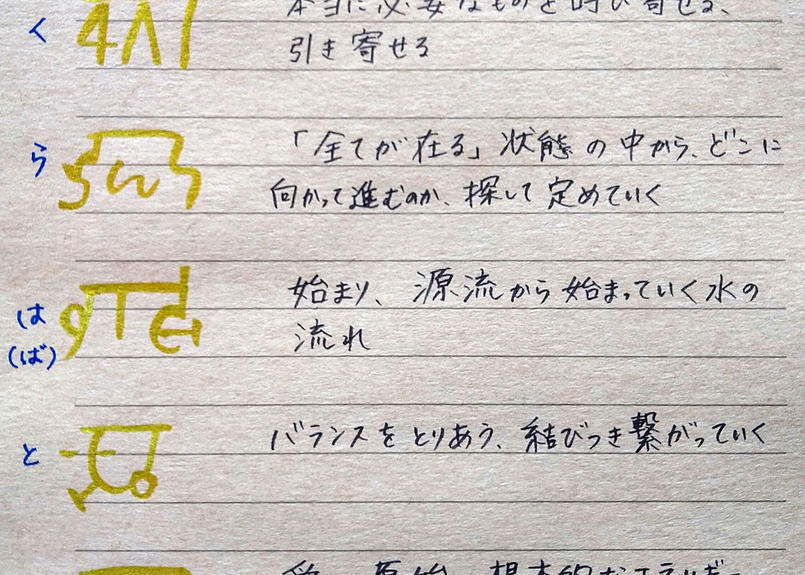 く 本当に必要なものを呼び寄せる、
引き寄せる
ら 「全てが在る」状態の中から、どこに
向かって進むのか、探して定めていく
は 始まり、源流から始まっていく水の
(ば) 流れ
と バランスをとりあう、結びつき繋がっていく